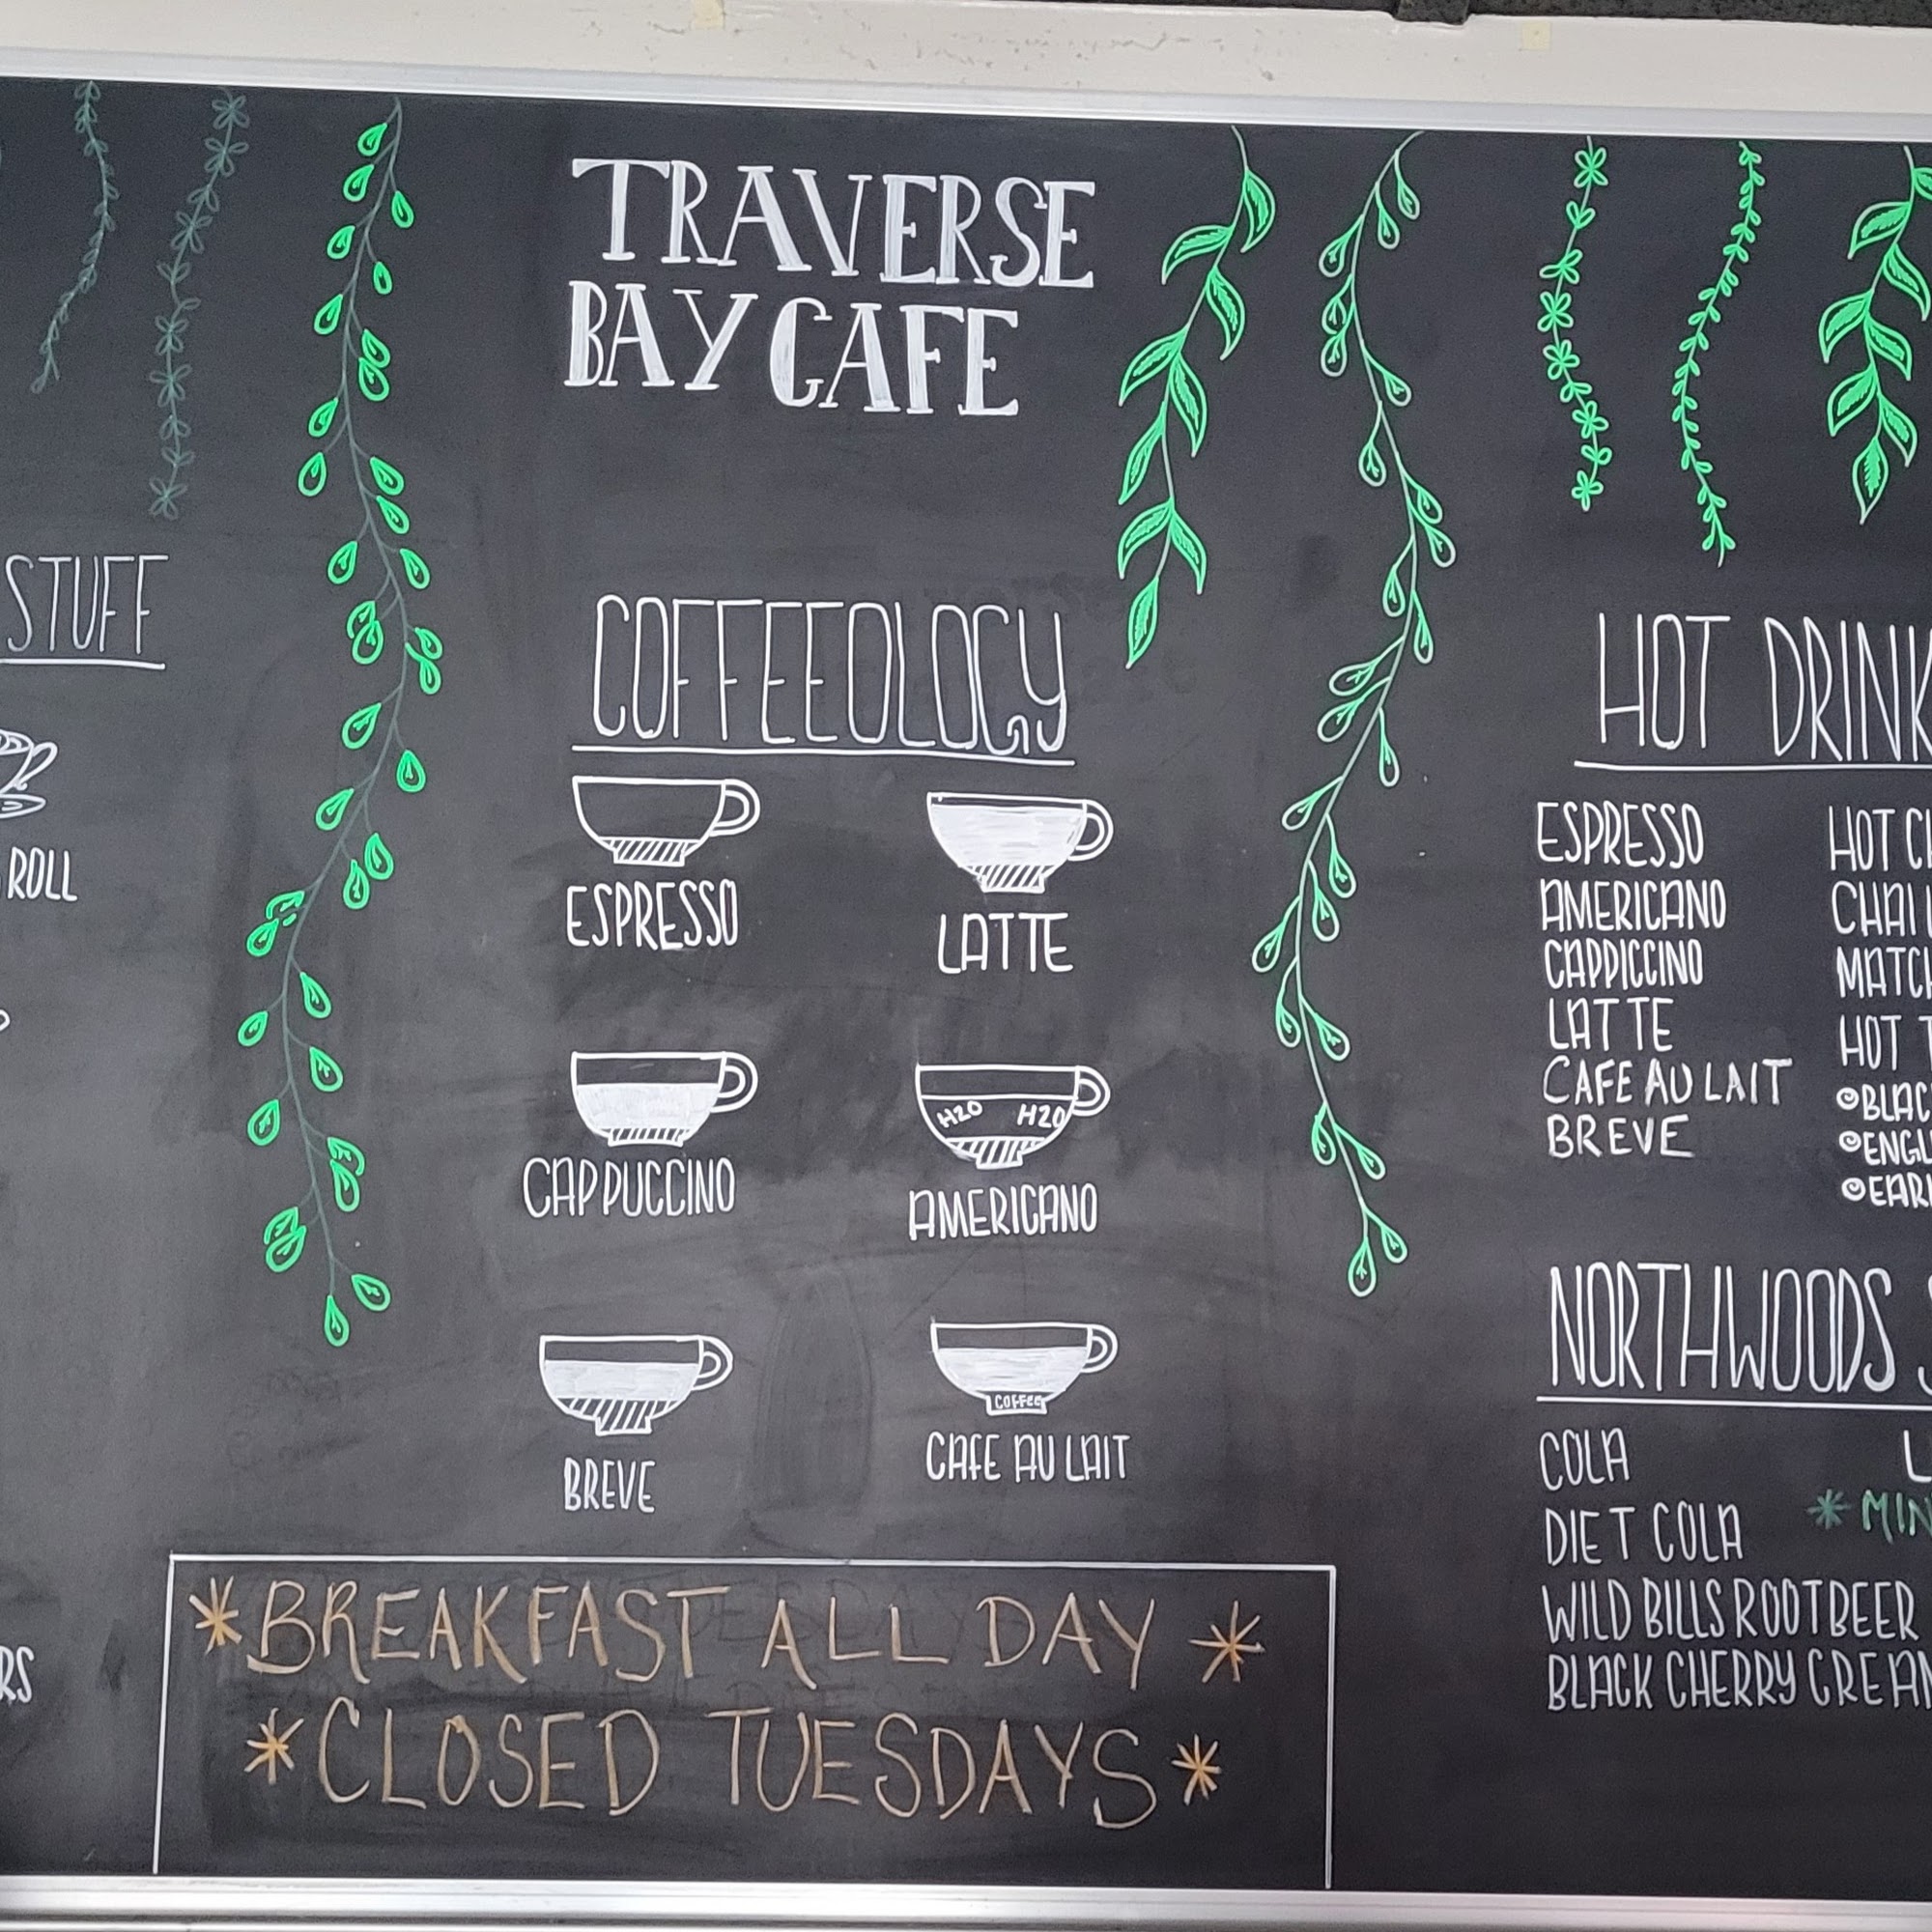 STUFF
ROLL
RS
TRAVERSE
BAY CAFE
COFFEEOLOGY
ESPRESSO
LATTE
CAPPUCCINO
H2O H2O
AMERICANO
BREVE
COFFEE
CAFE AU LAIT
*BREAKFAST ALL DAY*
*CLOSED TUESDAYS*
HOT DRINK
ESPRESSO
AMERICANO
CAPPICCINO
LATTE
CAFE AU LAIT
BREVE
HOT CH
CHAI
MATCH
HOT T
BLAC
ENGL
EARL
NORTHWOODS
COLA
DIET COLA
WILD BILLS ROOTBEER
BLACK CHERRY CREAM
L
* MIN